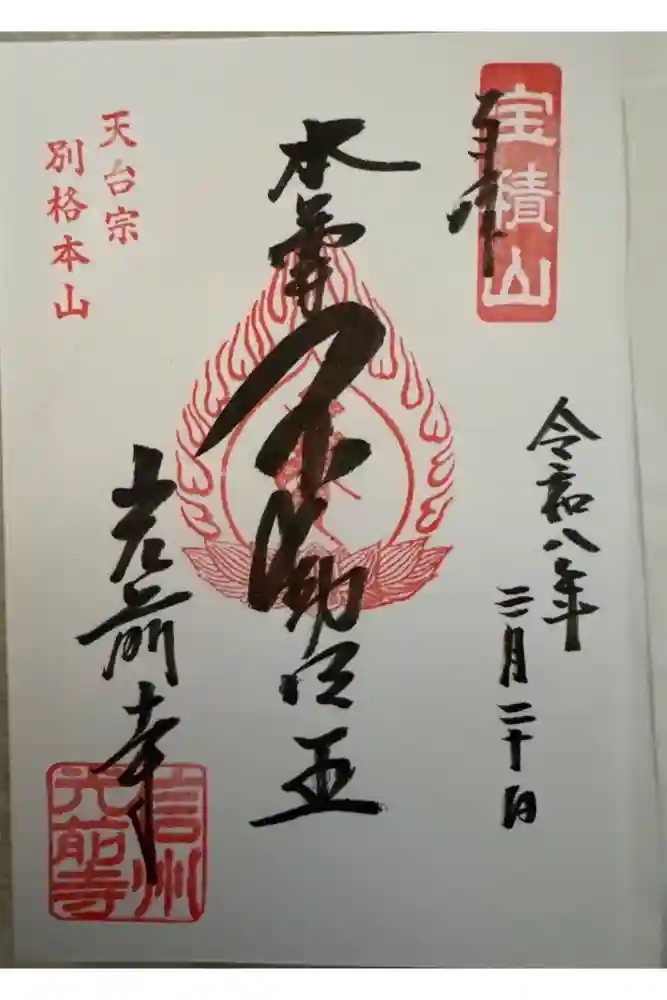 宝積山
奉拝
令和八年
三月二十日
本尊
不動明王
天台宗
別格本山
光前寺
信州
光前寺